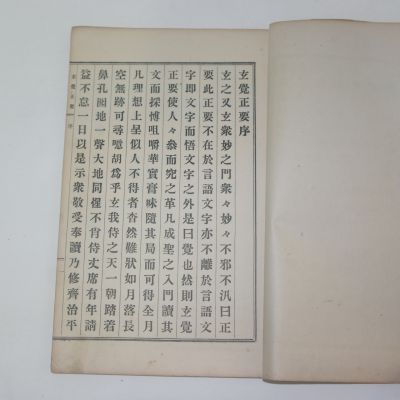 玄覺正要序
玄之又玄衆妙之門衆々妙々不邪不汎曰正
要此正要不在於言語文字亦不離於言語文
字即文字而悟文字之外是曰覺也然則玄覺
正要使人々叅而究之革凡成聖之入門讀其
文而採博咀嚼華實膏味隨其局而可得全月
凡理想上呈似人不得者杳然難狀如月落長
空無跡可尋噫胡爲乎玄我侍之天一朝踏着
鼻孔㘞地一聲大地同惺不肯侍丈席有年請
益不怠一日以是示衆敬受奉讀乃修齊治平
玄覺正要 序
一